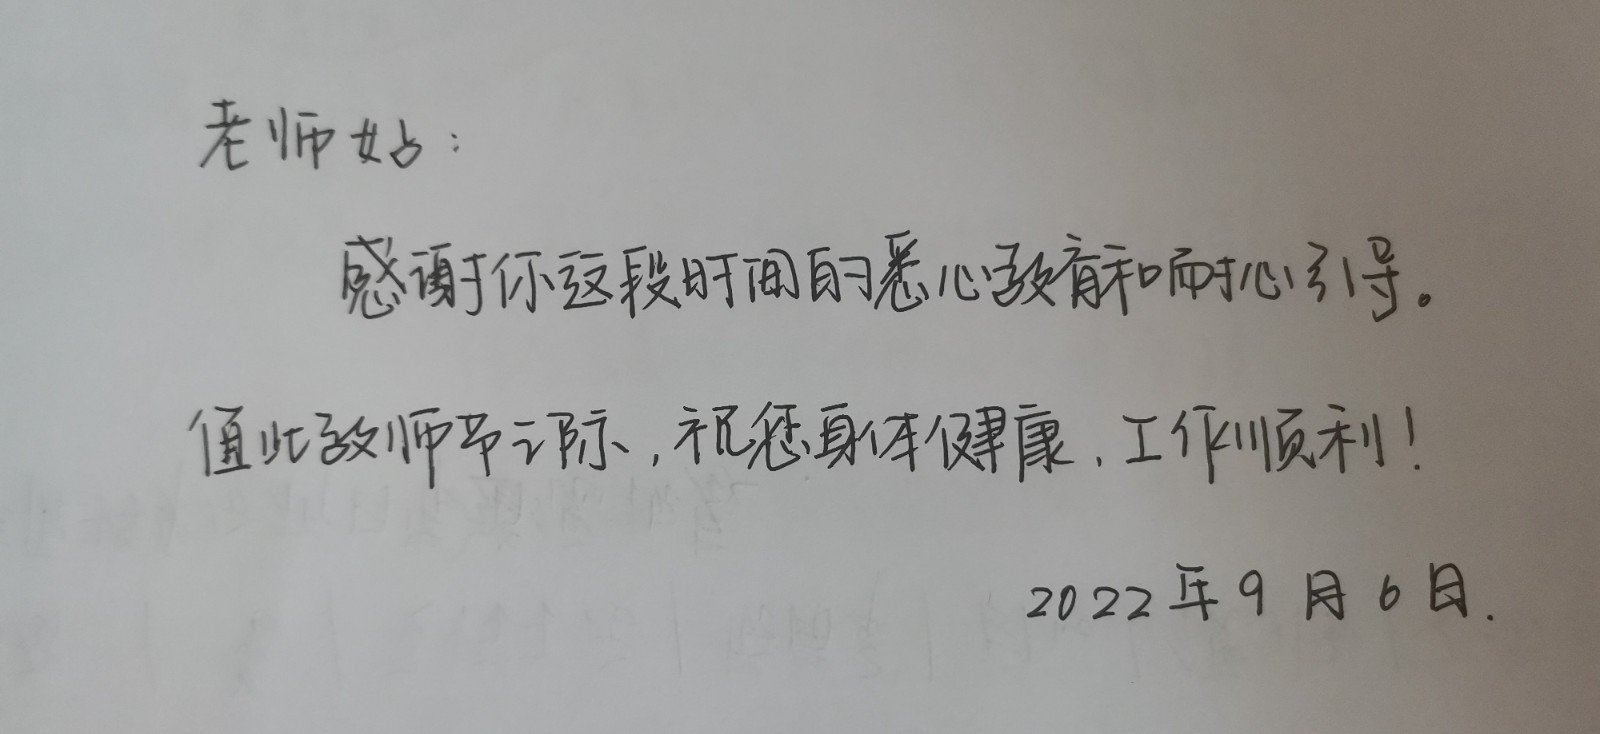 老师好：
感谢你这段时间的悉心教育和耐心引导。
值此教师节之际，祝您身体健康、工作顺利！
2022年9月6日.